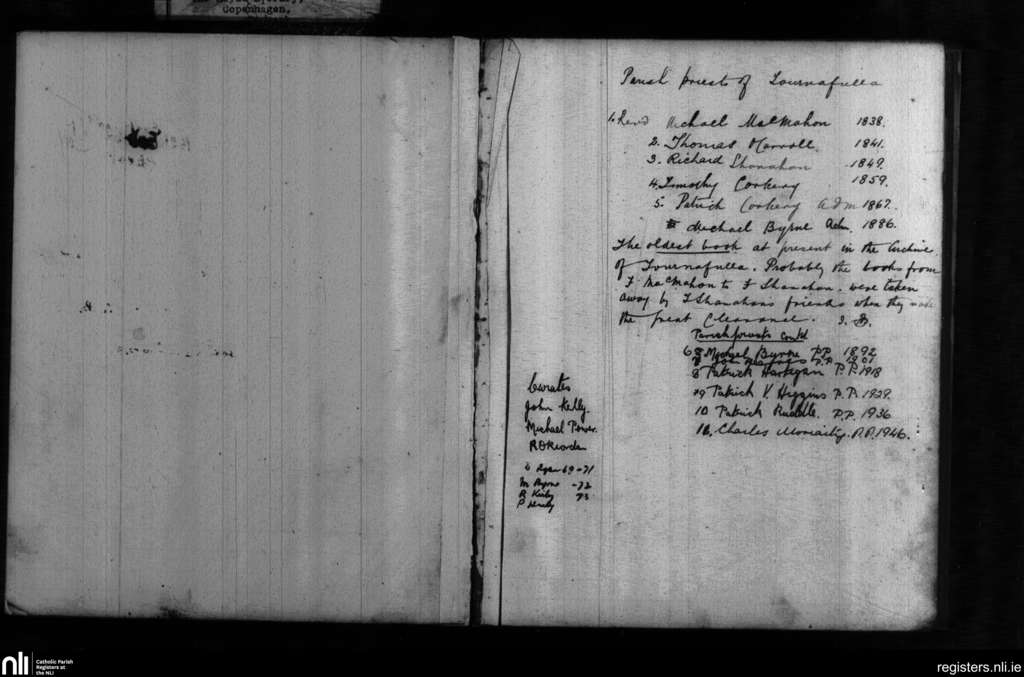 Copenhagen.
Parish priests of Tournafulla
1. Revd Michael MacMahon 1838.
2. Thomas 1841.
3. Richard Shanahan 1849.
4. Timothy Corkery 1859.
5. Patrick Corkery Adm 1867.
Michael Byrne Adm. 1886.
The oldest book at present in the Archive
of Tournafulla. Probably the books from
F MacMahon to F Shanahan. were taken
away by F Shanahans friends when they made
the great Clearance.
Parish priests contd
6 Michael Byrne P.P. 1892
P.P. 1901
8 Patrick Hartigan P.P. 1918
9 Patrick V. Higgins P.P. 1929.
10 Patrick Ruddle. P.P. 1936
Charles Moriarity. P.P. 1946.
Curates
John Kelly.
Michael Power.
R O'Riordan
Ryan 69-71
M Byrne -72
R Kirby 73
P
nli
Catholic Parish
Registers at
the NLI
registers.nli.ie